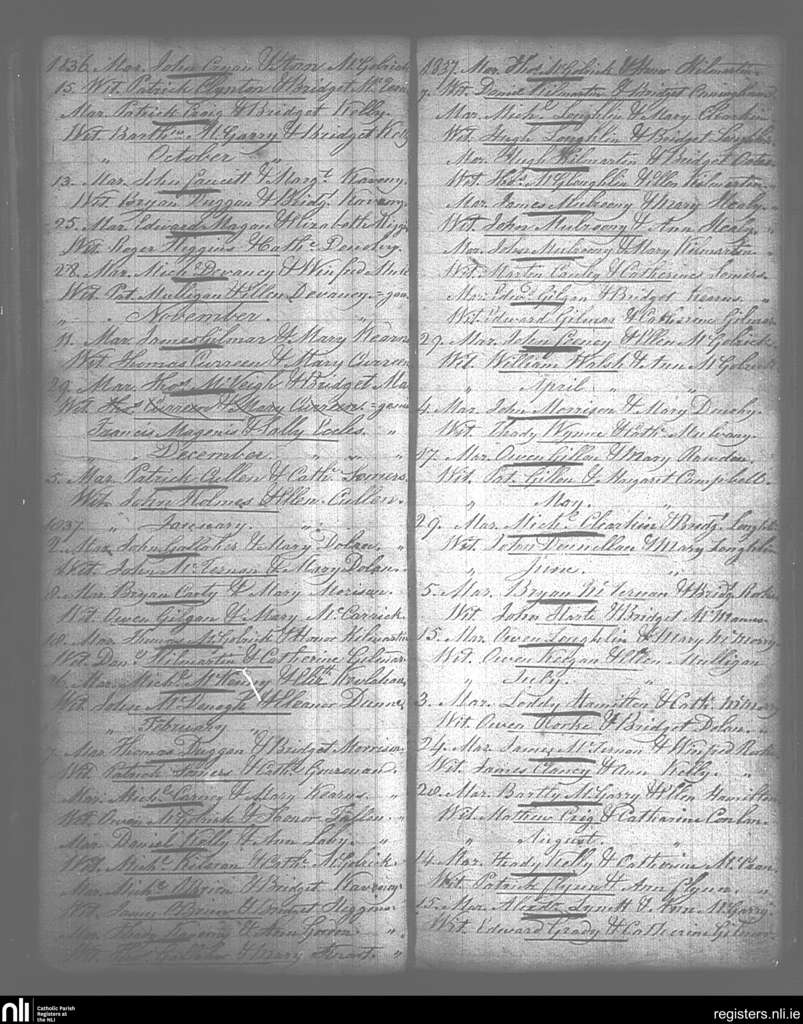 1836. Mar. John Cryan & Ann McGolrick
15. Wit. Patrick Clynton & Bridget
Mar. Patrick Craig & Bridget Kelly.
Wit. Barthw. McGarry & Bridget Kelly
" October "
13. Mar. John & Margt. Kaveny.
Wit. Bryan Duggan & Bridgt. Kaveny.
25. Mar. Edward Magan & Elizabeth Higgins
Wit. Roger Higgins & Cathe.
28. Mar. Michl. Devaney & Winifred
Wit. Pat. Mulligan & Ellen Devaney
" November. "
11. Mar. James Gilmar & Mary Kearns
Wit. Thomas Curreen & Mary Curreen
29. Mar. Thos. McVeigh & Bridget
Wit. Thos. Curreen & Mary Curreen.
Francis Magenis & Sally Eccles. "
" December. "
5. Mar. Patrick Cullen & Cathe. Somers.
Wit. John Holmes & Ellen Cullen.
1837 " January. "
2. Mar. John Gallaher & Mary Dolan. "
Wit. John McTernan & Mary Dolan.
8. Mar. Bryan Carty & Mary Morison.
Wit. Owen Gilgan & Mary McCarrick.
10. Mar. Thomas McGolrick & Honor Kilmartin
Wit. Denl. Kilmartin & Catherine Gilmar.
Mar. Michl. & Cathe.
Wit. John McDonogh & Eleanor Dunne,
" February "
7. Mar. Thomas Duggan & Bridget Morrison.
Wit. Patrick Somers & Cathe.
Mar. Michl. Carney & Mary Kearns. "
Wit. Owen McGolrick & Honor "
Mar. Daniel Kelly & Ann "
Wit. Michl. & Cathe. McGolrick.
Mar. Michl. OBrien & Bridget Kaveny
Wit. James OBrien & Bridget Higgins
Mar. Kaveny & Ann "
Wit. & Mary "
1837. Mar. Thos. McGolrick & Honor Kilmartin.
7. Wit. Daniel Kilmartin & Bridget Cunningham
Mar. Michl. Loughlin & Mary Clearkin
Wit. Hugh Loughlin & Bridget Loughlin
Mar. Hugh Kilmartin & Bridget
Wit. Thos. McGloughlin & Ellen Kilmartin. "
Mar. James Mulroony & Mary Healy. "
Wit. John Mulroony & Ann Healy. "
Mar. John Mulroony & Mary Kilmartin "
Wit. Martin & Catherine Somers.
Mar. Edwd. Gilgan & Bridget Kearns. "
Wit. Edward Gilmar & Catherine Gilmar.
29. Mar. John Feeney & Ellen McGolrick.
Wit. William Walsh & Ann McGolrick
" April "
4. Mar. John Morrison & Mary
Wit. Thady Wynne & Cathe. Mulvany.
17. Mar. Owen Gillen & Mary
Wit. Pat. Gillen & Margaret Campbell.
" May. "
29. Mar. Michl. Clearkin & Bridgt. Loughlin
Wit. John Donnellan & Mary Loughlin
" June. "
5. Mar. Bryan McTernan & Bridgt. Rorke
Wit. John Harte & Bridget McManus
15. Mar. Owen Loughlin & Mary
Wit. Owen Keegan & Ellen Mulligan
" July. "
3. Mar. Loddy Hamilton & Cathe.
Wit. Owen Rorke & Bridget Dolan. "
24. Mar. James McTernan & Winifred Rorke
Wit. James Clancy & Ann Kelly. "
20. Mar. Bartly McGarry & Ellen Hamilton
Wit. Mathew Craig & Catharine Conlon.
" August. "
14. Mar. Thady Kelly & Catherine
Wit. Patrick Flynn & Ann Flynn. "
15. Mar. Lynott & Ann McGarry.
Wit. Edward Grady & Catherine Gilmar.
nli
Catholic Parish
Registers at
the NLI
registers.nli.ie